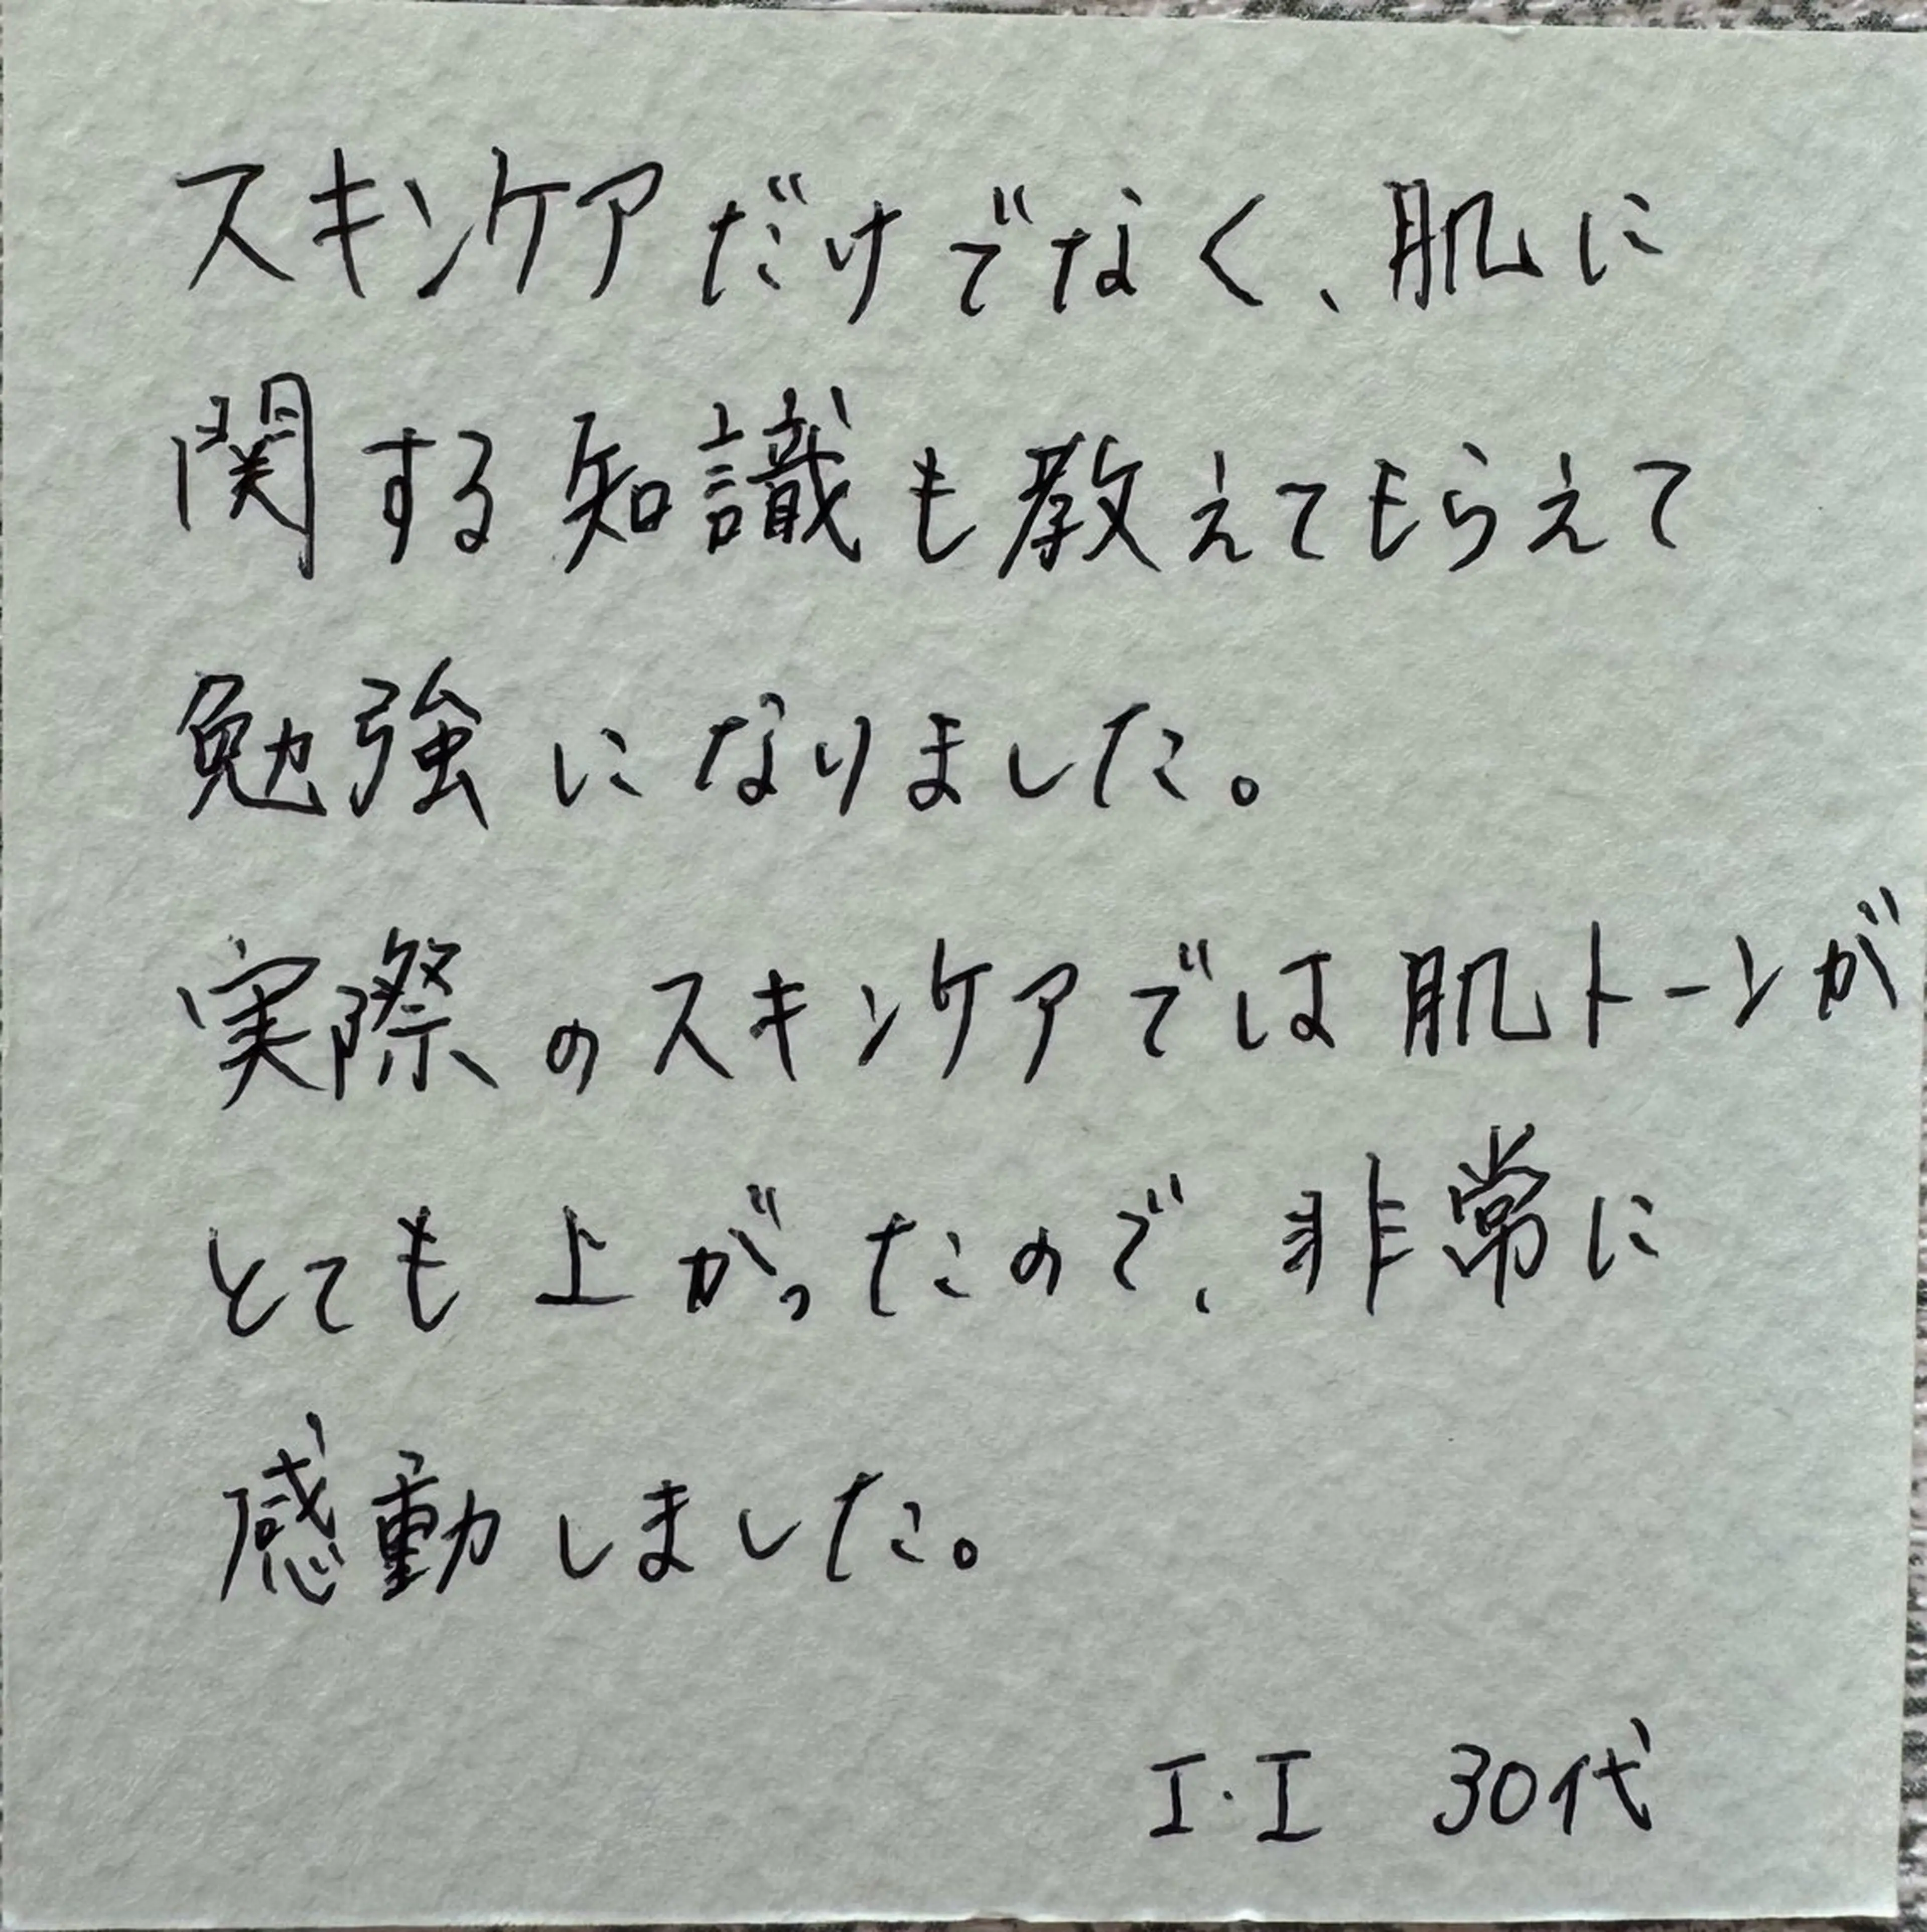 スキンケアだけでなく、肌に
関する知識も教えてもらえて
勉強になりました。
実際のスキンケアでは肌トーンが
とても上がったので、非常に
感動しました。
I・I 30代